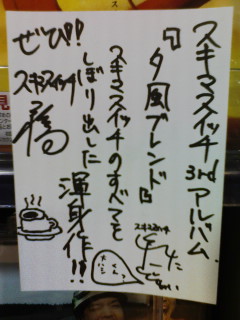 スキマスイッチ 3rdアルバム
『夕風ブレンド』
スキマスイッチのすべてを
しぼり出した
渾身作!!
ぜひ!!
スキマスイッチ
スキマスイッチ